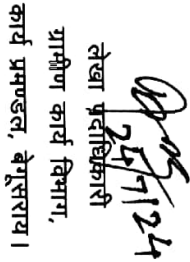 24/7/24
लेखा पदाधिकारी
ग्रामीण कार्य विभाग,
कार्य प्रमण्डल, बेगूसराय।